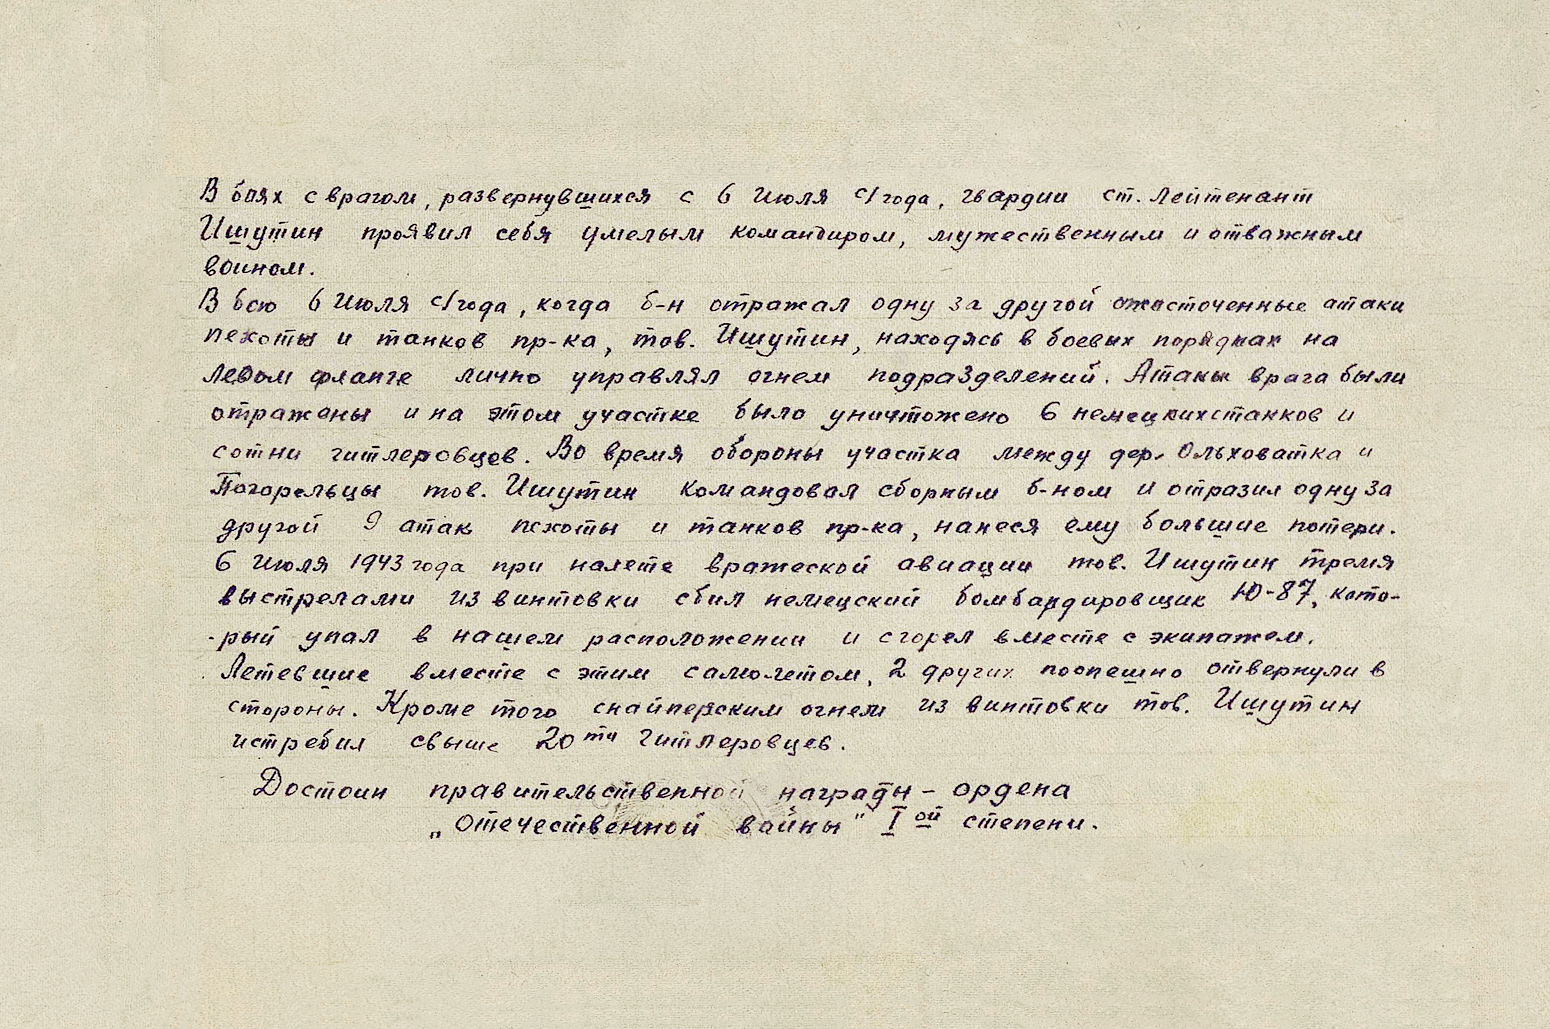 В боях с врагом, развернувшихся с 6 Июля с/года, гвардии ст. Лейтенант
Ишутин проявил себя умелым командиром, мужественным и отважным
воином.
В бою 6 Июля с/года, когда б-н отражал одну за другой ожесточенные атаки
пехоты и танков пр-ка, тов. Ишутин, находясь в боевых порядках на
левом фланге лично управлял огнем подразделений. Атаки врага были
отражены и на этом участке было уничтожено 6 немецких танков и
сотни гитлеровцев. Во время обороны участка между дер. Ольховатка и
Погорельцы тов. Ишутин командовал сборным б-ном и отразил одну за
другой 9 атак пехоты и танков пр-ка, нанеся ему большие потери.
6 Июля 1943 года при налете вражеской авиации тов. Ишутин тремя
выстрелами из винтовки сбил немецский бомбардировщик Ю-87, кото-
-рый упал в нашем расположении и сгорел вместе с экипажем.
Летевшие вместе с этим самолетом, 2 других поспешно отвернули в
стороны. Кроме того снайперским огнем из винтовки тов. Ишутин
истребил свыше 20ти Гитлеровцев.
Достоин правительственной награды - ордена
„Отечественной войны" Iой степени.